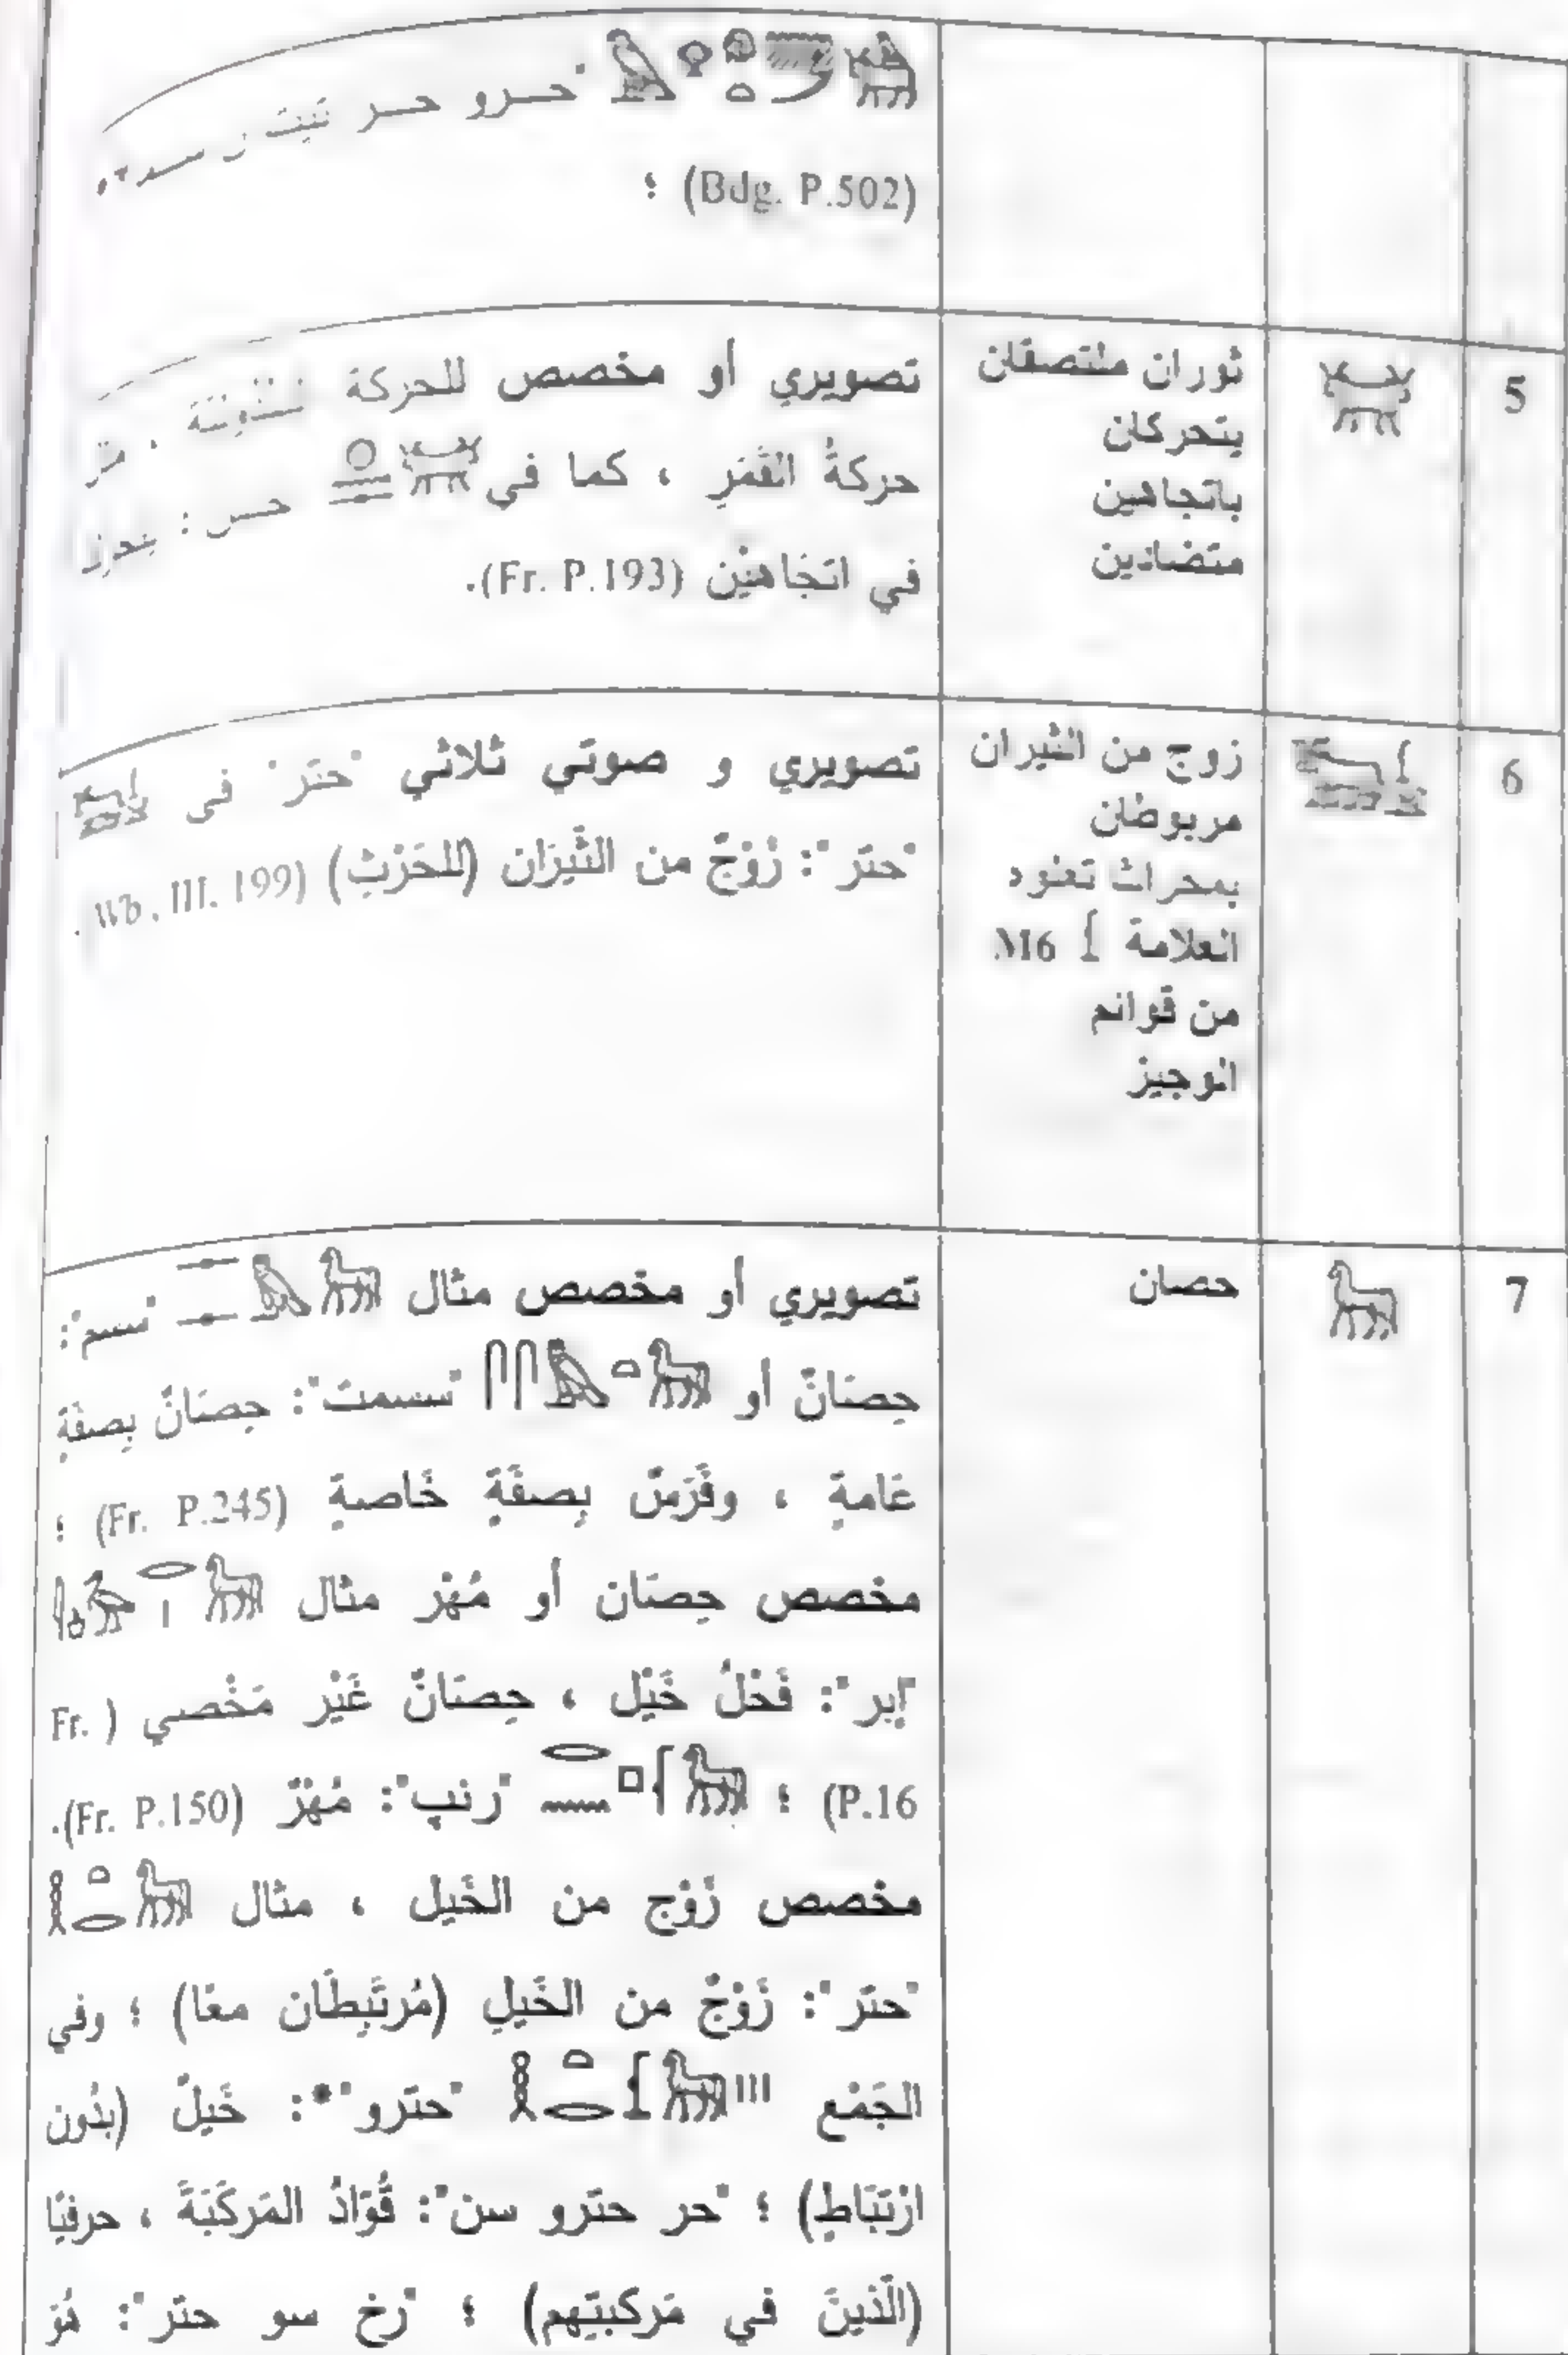 "حـرو حـر تبت
(Bdg. P.502) ؛
5
ثوران ملتصقان
يتحركان
باتجاهين
متضادين
تصويري أو مخصص للحركة
حركةُ القَمَرِ ، كما في حس :
في اتجَاهيْن (Fr. P.193).
6
زوج من الثيران
مربوطان
بمحراث تعلوه
العلامة M6
من قوائم
الوجيز
تصويري و صوتي ثلاثي "حتر" في
"حتر": زَوْجٌ من الثِّيرَان (للحَرْثِ) (Wb, III. 199 .
7
حصان
تصويري أو مخصص مثال "سسم":
حِصَانٌ أو "سسمت": حِصَانٌ بِصفَةٍ
عَامةٍ ، وفَرَسٌ بِصفَةٍ خَاصةٍ (Fr. P.245) ؛
مخصص حِصَان أو مُهْر مثال
"إبر": فَحْلُ خَيْل ، حِصَانٌ غَيْر مَخْصي (Fr.
P.16) ؛ "رنپ": مُهْرٌ (Fr. P.150).
مخصص زَوْج من الخَيل ، مثال
"حتر": زَوْجٌ من الخَيلِ (مُرتَبِطَان معًا) ؛ وفي
الجَمْع "حترو"*: خَيلٌ (بدُون
ارْتبَاطٍ) ؛ "حر حترو سن": قُوَادُ المَركَبَةَ ، حرفيًا
(الَّذينَ في مَركبتِهم) ؛ "رخ سو حتر": هُوَ